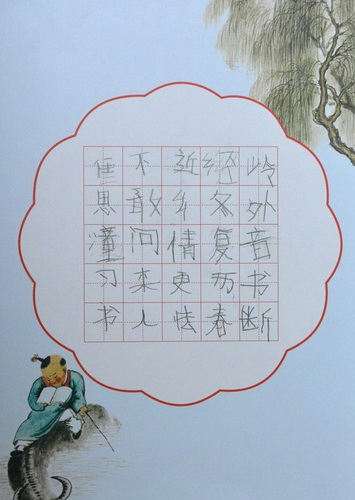 岭外音书断
经冬复历春
近乡情更怯
不敢问来人
思潼习书